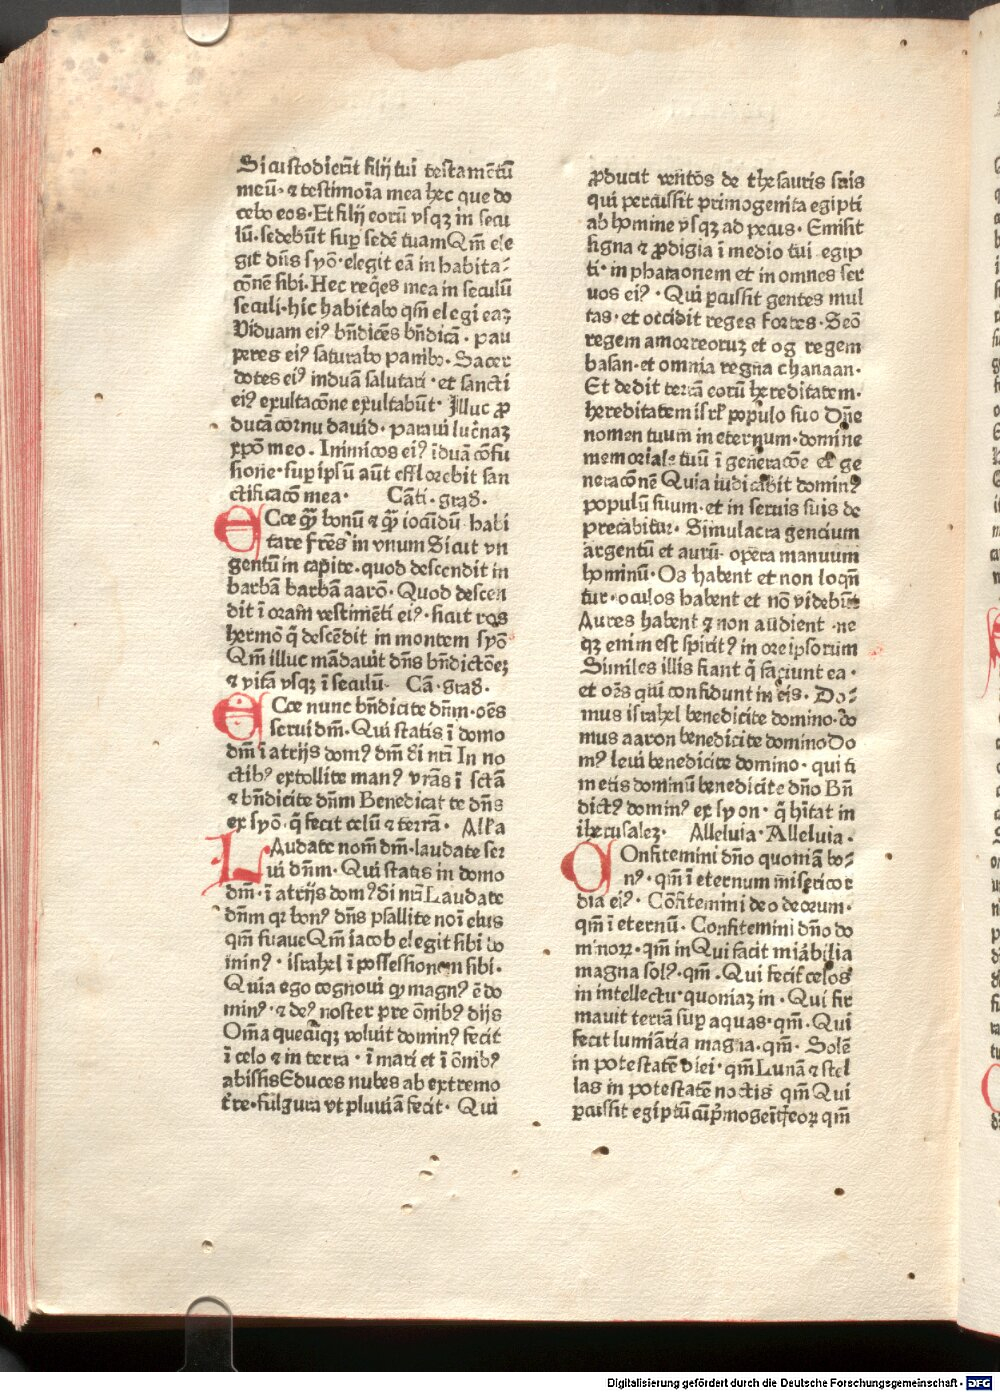 Si custodierīt filij tui testamētū
meū· ⁊ testimoīa mea hec que do
cebo eos· Et filij eorū vsqꝫ in secu
lū· sedebūt suꝑ sedē tuam Qm̄ ele
git dn̄s syō· elegit eā in habita⸗
cōnē sibi· Hec req̄es mea in seculū
seculi· hic habitabo qm̄ elegi eaꝫ
Viduam eiꝰ bn̄dicēs bn̄dicā · pau
peres eiꝰ saturabo panibꝰ· Sacer
dotes eiꝰ induā salutari · et sancti
eiꝰ exultacōne exultabūt· Illuc ꝓ
ducā cornu dauid· paraui luc̄naꝫ
xp̄o meo · Inimicos eiꝰ īduā cōfu
sione· suꝑ ipsū aūt efflorebit san
ctificacō mea· Cāti· grad̄·
ECce qͣꝫ bonū ⁊ qͣꝫ iocūdū· habi
tare fr̄es in vnum Sicut vn
gentū in capite· quod descendit in
barbā barbā aarō· Quod descen
dit ī oram̄ vestimēti eiꝰ· sicut ros
hermō q̄ descēdit in montem syō
Qm̄ illuc mādauit dn̄s bn̄dictōeꝫ
⁊ vitā vsqꝫ ī seculū· Cā· grad̄·
ECce nunc bn̄dicite dn̄m· oēs
serui dn̄i· Qui statis ī domo
dn̄i ī atrijs domꝰ dn̄i di nr̄i In no
ctibꝰ extollite manꝰ vr̄as ī sctā
⁊ bn̄dicite dn̄m Benedicat te dn̄s
ex syō· q̄ fecit celū ⁊ terrā· All'a
LAudate nom̄ dn̄i· laudate ser
ui dn̄m· Qui statis in domo
dn̄i· ī atrijs domꝰ di nr̄i Laudate
dn̄m qꝛ bonꝰ dn̄s psallite noī eius
qm̄ suaue Qm̄ iacob elegit sibi do
minꝰ· israhel ī possessionem sibi·
Quia ego cognoui qꝫ magnꝰ ē do
minꝰ· ⁊ deꝰ noster pre ōnibꝰ dijs
Om̄a quecūqꝫ voluit dominꝰ fecit
ī celo ⁊ in terra· ī mari et ī ōnibꝰ
abissis Educes nubes ab extremo
t̄re· fulgura vt pluuiā fecit· Qui
ꝓducit ventōs de thesauris suis
qui percussit primogenita egipti
ab homine vsqꝫ ad pecus· Emisit
signa ⁊ ꝓdigia ī medio tui egip
ti· in pharaonem et in omnes ser
uos eiꝰ· Qui ꝑcussit gentes mul
tas· et occidit reges fortes· Seō
regem amorreoruꝫ et og regem
basan· et omnia regna chanaan·
Et dedit terrā eorū hereditatem·
hereditatem isrl̄ populo suo Dn̄e
nomen tuum in eternum· domine
memoriale tuū ī generacōe et ge
neracōnē Quia iudicabit dominꝰ
populū suum· et in seruis suis de
precabitur· Simulacra gencium
argentū et aurū· opera manuum
hominū· Os habent et non loqn̄
tur· oculos habent et nō videbūt
Aures habent ⁊ non audient ·ne
qꝫ enim est spiritꝰ in ore ipsorum
Similes illis fiant q̄ faciunt ea·
et oēs qui confidunt in eis· Do⸗
mus israhel benedicite domino· do
mus aaron benedicite domino Do
mꝰ leui benedicite domino· qui ti
metis dominū benedicite dn̄o Bn̄
dictꝰ dominꝰ ex syon· q̄ hītat in
iherusaleꝫ· Alleluia· Alleluia·
COnfitemini dn̄o quoniā bo⸗
nꝰ· qm̄ ī eternum misericor
dia eiꝰ· Cōfitemini deo deorum·
qm̄ ī eternū· Confitemini dn̄o do
minoꝝ· qm̄ in Qui facit mirabilia
magna solꝰ· qm̄· Qui fecit celos
in intellectu· quoniaꝫ in· Qui fir
mauit terrā suꝑ aquas· qm̄· Qui
fecit lumiāria magna· qm̄· Solē
in potestatē diei· qm̄ Lunā ⁊ stel
las in potestatē noctis qm̄ Qui
ꝑcussit egiptū cū pͥmogeīt̄ eoꝝ qm̄
Digitalisierung gefördert durch die Deutsche Forschungsgemeinschaft - DFG